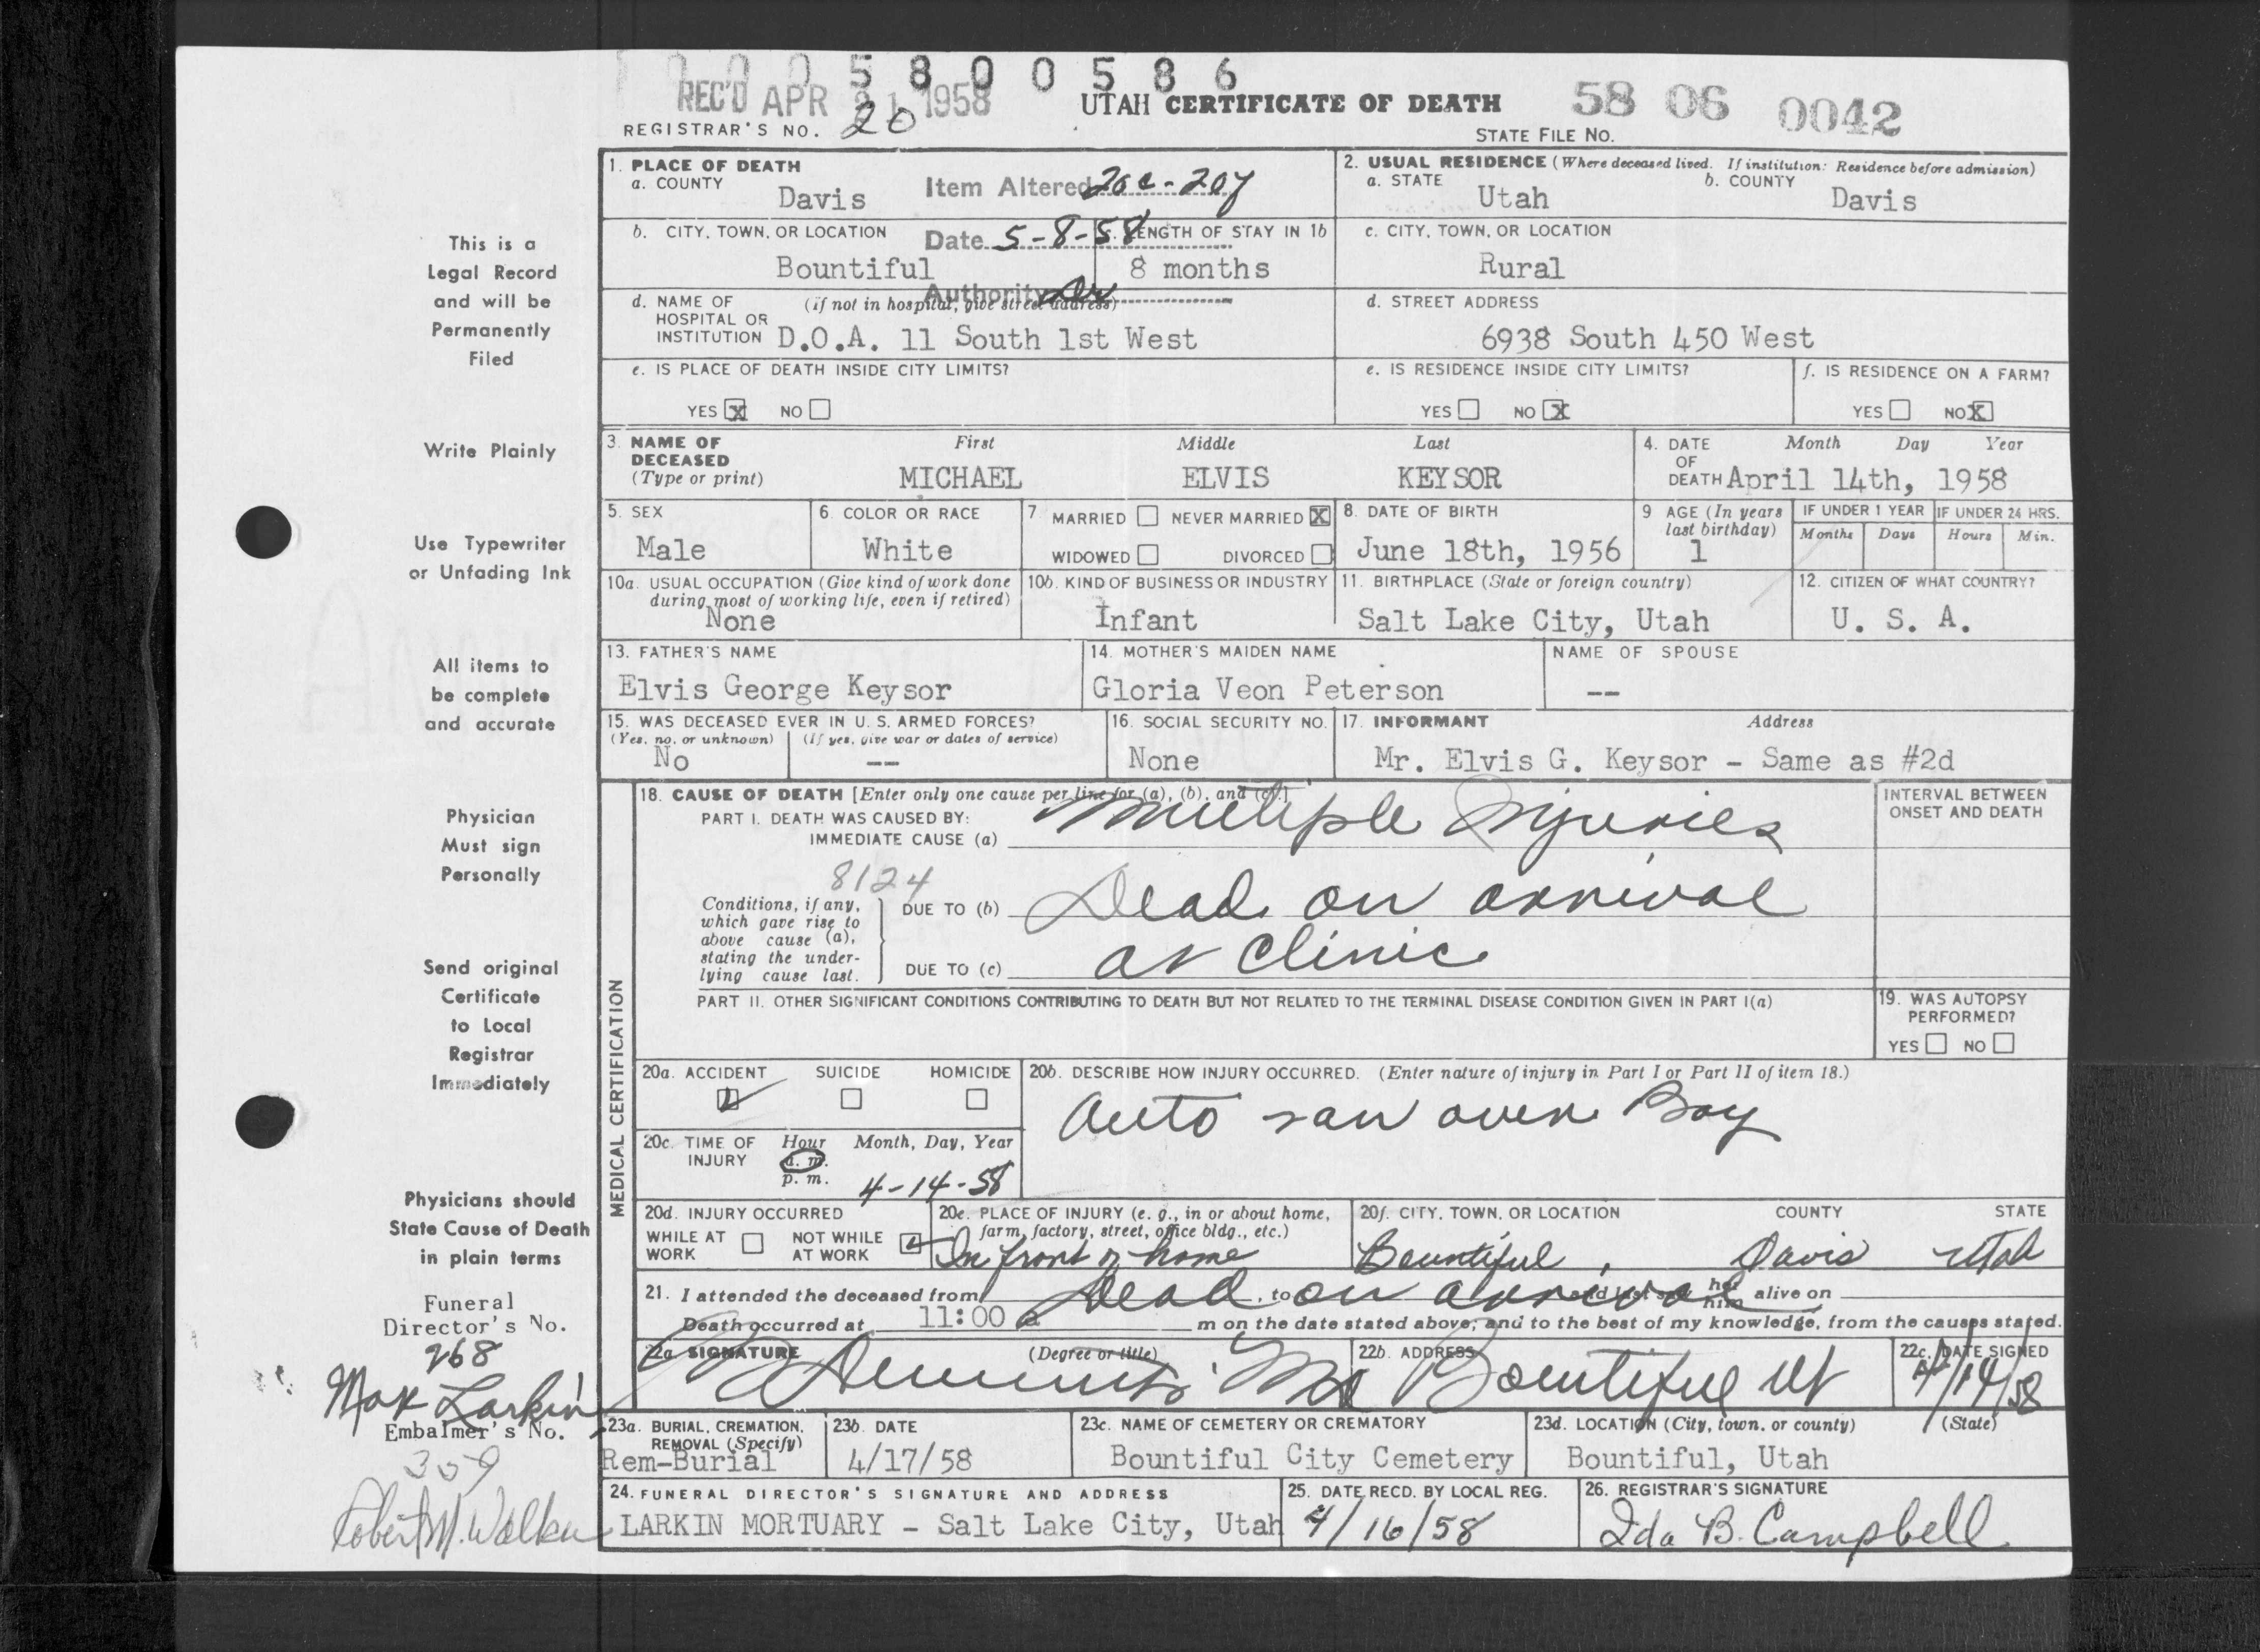 5 8 0 0 5 8 6
REC'D APR 21 1958
UTAH CERTIFICATE OF DEATH
58 06 0042
REGISTRAR'S NO. 20
STATE FILE NO.
This is a
Legal Record
and will be
Permanently
Filed
Write Plainly
Use Typewriter
or Unfading Ink
All items to
be complete
and accurate
Physician
Must sign
Personally
Send original
Certificate
to Local
Registrar
Immediately
Physicians should
State Cause of Death
in plain terms
Funeral
Director's No.
268
Max Larkin
Embalmer's No.
359
Robert M. Walker
1. PLACE OF DEATH
a. COUNTY
Davis
Item Altered 20c - 20f
Date 5-8-58
Authority Dr
b. CITY, TOWN, OR LOCATION
Bountiful
c. LENGTH OF STAY IN 1b
8 months
d. NAME OF HOSPITAL OR INSTITUTION (if not in hospital, give street address)
D.O.A. 11 South 1st West
e. IS PLACE OF DEATH INSIDE CITY LIMITS?
YES X NO
2. USUAL RESIDENCE (Where deceased lived. If institution: Residence before admission)
a. STATE
Utah
b. COUNTY
Davis
c. CITY, TOWN, OR LOCATION
Rural
d. STREET ADDRESS
6938 South 450 West
e. IS RESIDENCE INSIDE CITY LIMITS?
YES NO X
f. IS RESIDENCE ON A FARM?
YES NO X
3. NAME OF DECEASED (Type or print)
First Middle Last
MICHAEL ELVIS KEYSOR
4. DATE OF DEATH Month Day Year
April 14th, 1958
5. SEX
Male
6. COLOR OR RACE
White
7 MARRIED NEVER MARRIED X
WIDOWED DIVORCED
8. DATE OF BIRTH
June 18th, 1956
9 AGE (In years last birthday)
1
IF UNDER 1 YEAR IF UNDER 24 HRS.
Months Days Hours Min.
10a. USUAL OCCUPATION (Give kind of work done during most of working life, even if retired)
None
10b. KIND OF BUSINESS OR INDUSTRY
Infant
11. BIRTHPLACE (State or foreign country)
Salt Lake City, Utah
12. CITIZEN OF WHAT COUNTRY?
U. S. A.
13. FATHER'S NAME
Elvis George Keysor
14. MOTHER'S MAIDEN NAME
Gloria Veon Peterson
NAME OF SPOUSE
--
15. WAS DECEASED EVER IN U. S. ARMED FORCES?
(Yes, no, or unknown) (If yes, give war or dates of service)
No --
16. SOCIAL SECURITY NO.
None
17. INFORMANT Address
Mr. Elvis G. Keysor - Same as #2d
MEDICAL CERTIFICATION
18. CAUSE OF DEATH [Enter only one cause per line for (a), (b), and (c).]
PART I. DEATH WAS CAUSED BY:
IMMEDIATE CAUSE (a) Multiple Injuries
8124
Conditions, if any, which gave rise to above cause (a), stating the underlying cause last.
DUE TO (b) Dead on arrival
DUE TO (c) at clinic
INTERVAL BETWEEN ONSET AND DEATH
PART II. OTHER SIGNIFICANT CONDITIONS CONTRIBUTING TO DEATH BUT NOT RELATED TO THE TERMINAL DISEASE CONDITION GIVEN IN PART I(a)
19. WAS AUTOPSY PERFORMED?
YES NO
20a. ACCIDENT SUICIDE HOMICIDE
20b. DESCRIBE HOW INJURY OCCURRED. (Enter nature of injury in Part I or Part II of item 18.)
Auto ran over Boy
20c. TIME OF INJURY Hour Month, Day, Year
a. m.
p. m. 4-14-58
20d. INJURY OCCURRED
WHILE AT WORK NOT WHILE AT WORK
20e. PLACE OF INJURY (e. g., in or about home, farm, factory, street, office bldg., etc.)
In front of home
20f. CITY, TOWN, OR LOCATION COUNTY STATE
Bountiful, Davis Utah
21. I attended the deceased from Dead, to on arrival and last saw her him alive on
Death occurred at 11:00 a m on the date stated above; and to the best of my knowledge, from the causes stated.
22a. SIGNATURE (Degree or title)
MD
22b. ADDRESS
Bountiful Ut
22c. DATE SIGNED
4/14/58
23a. BURIAL, CREMATION, REMOVAL (Specify)
Rem-Burial
23b. DATE
4/17/58
23c. NAME OF CEMETERY OR CREMATORY
Bountiful City Cemetery
23d. LOCATION (City, town, or county) (State)
Bountiful, Utah
24. FUNERAL DIRECTOR'S SIGNATURE AND ADDRESS
LARKIN MORTUARY - Salt Lake City, Utah
25. DATE RECD. BY LOCAL REG.
4/16/58
26. REGISTRAR'S SIGNATURE
Ida B. Campbell